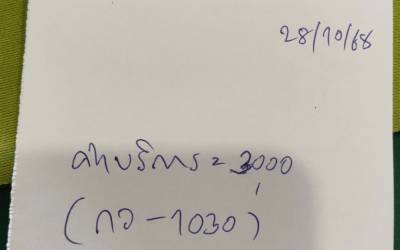 28/10/68
ค่าบริการ = 3000
(กว - 1030)